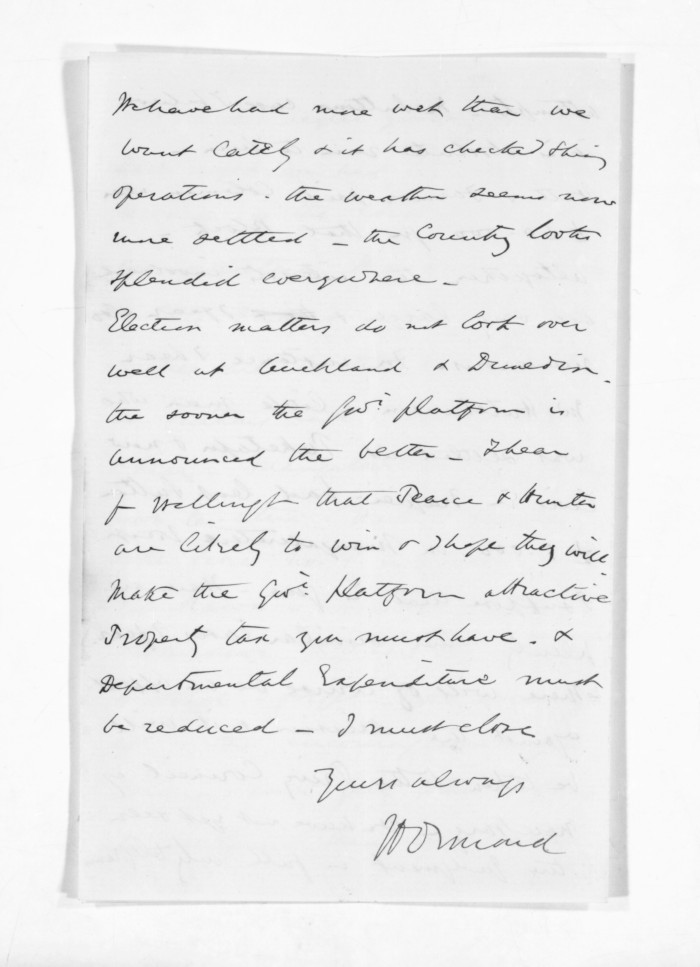 We have had more wet than we
want lately & it has checked Shing
operations. the weather seems now
more settled – the Country looks
splendid everywhere –
Election matters do not look over
well at Auckland & Dunedin.
the sooner the Govt. platform is
announced the better – I hear
f Wellingt that Pearce & Hunter
are likely to win & I hope they will
Make the Govt. platform attractive
Property tax you must have. &
Departmental Expenditure must
be reduced – I must close
Yours always
JD Ormond